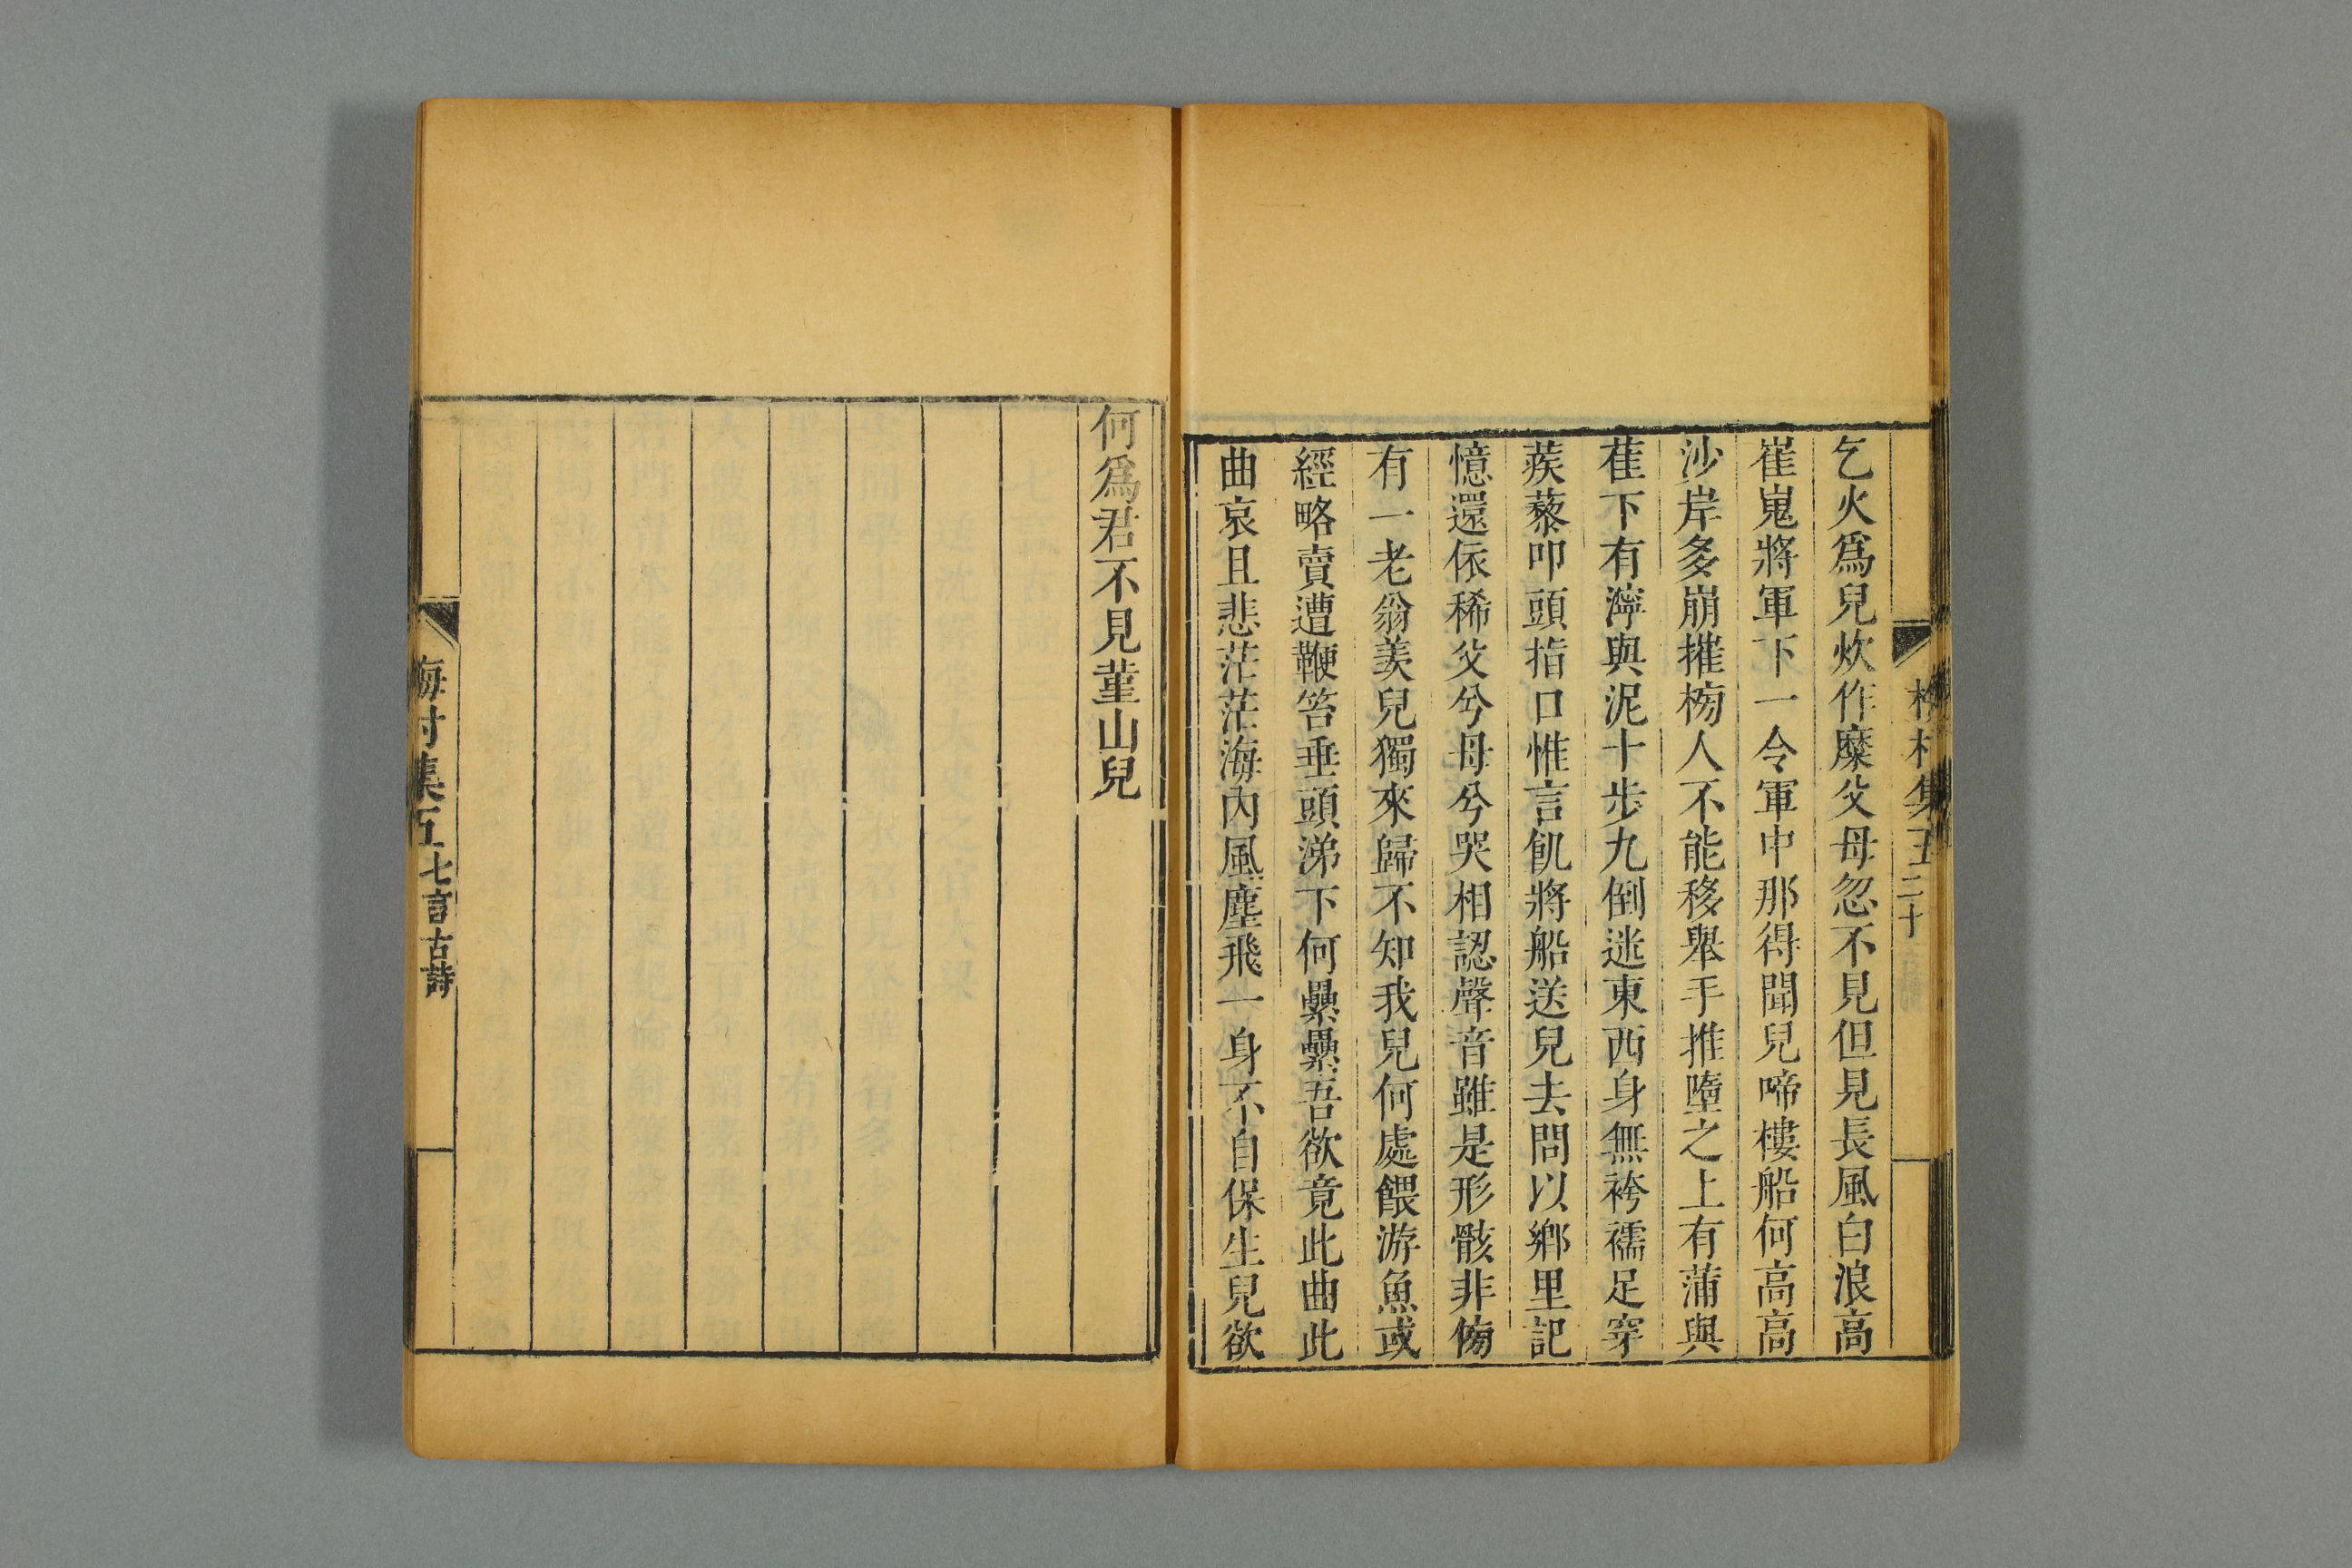 乞火爲兒炊作糜父母忽不見但見長風白浪高
崔嵬將軍下一令軍中那得聞兒啼樓船何高高
沙岸多崩摧榜人不能移舉手推墮之上有蒲與
萑下有濘與泥十步九倒迷東西身無袴襦足穿
蒺藜叩頭指口惟言飢將船送兒去問以鄉里記
憶還依稀父兮母兮哭相認聲音雖是形骸非傍
有一老翁羨兒獨來歸不知我兒何處餵游魚或
經略賣遭鞭笞垂頭涕下何纍纍吾欲竟此曲此
曲哀且悲茫茫海內風塵飛一身不自保生兒欲
何爲君不見堇山兒
梅村集五 二十
梅村集五 七言古詩